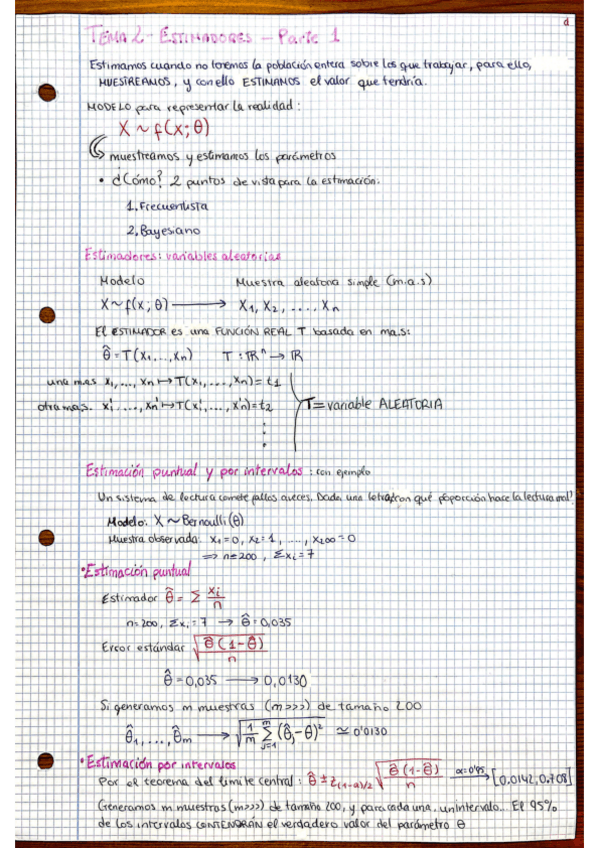 1
TEMA 2 - ESTIMADORES - Parte 1
Estimamos cuando no tenemos la población entera sobre los que trabajar, para ello,
MUESTREAMOS, y con ello ESTIMAMOS el valor que tendría.
MODELO para representar la realidad:
X ~ f(x; θ)
muestreamos y estimamos los parámetros
• ¿Cómo? 2 puntos de vista para la estimación.
1, Frecuentista
2, Bayesiano
Estimadores: variables aleatorias
Modelo Muestra aleatoria simple (m.a.s)
X ~ f(x; θ) ⟶ X₁, X₂, ..., Xn
El ESTIMADOR es una FUNCIÓN REAL T basada en mas:
θ̂ = T(X₁,...,Xn) T: ℝⁿ → ℝ
una mas x₁, ..., xn ↦ T(x₁, ..., xn) = t₁
otra mas. x₁', ..., xn' ↦ T(x₁', ..., x'n) = t₂
T = variable ALEATORIA
Estimación puntual y por intervalos: con ejemplo
Un sistema de lectura comete fallos a veces. Dada una letra, ¿con qué proporción hace la lectura mal?
Modelo: X ~ Bernoulli(θ)
Muestra observada: x₁=0, x₂=1, ...., x₂₀₀=0
⟹ n=200, Σxᵢ=7
• Estimación puntual
Estimador θ̂ = Σ xᵢ/n
n=200, Σxᵢ=7 → θ̂=0,035
Error estándar √(θ̂(1-θ̂)/n)
θ̂=0,035 ⟶ 0,0130
Si generamos m muestras (m>>>) de tamaño 200
θ̂₁, ..., θ̂m ⟶ √(1/m Σ_{j=1}^{m} (θ̂ⱼ-θ)²) ≃ 0'0130
• Estimación por intervalos
Por el teorema del límite central: θ̂ ± z₍₁₋α₎/₂ √(θ̂(1-θ̂)/n) α=0'95⟶ [0.0142, 0.708]
Generamos m muestras (m>>>) de tamaño 200, y para cada una, un intervalo... El 95%
de los intervalos CONTENDRÁN el verdadero valor del parámetro θ